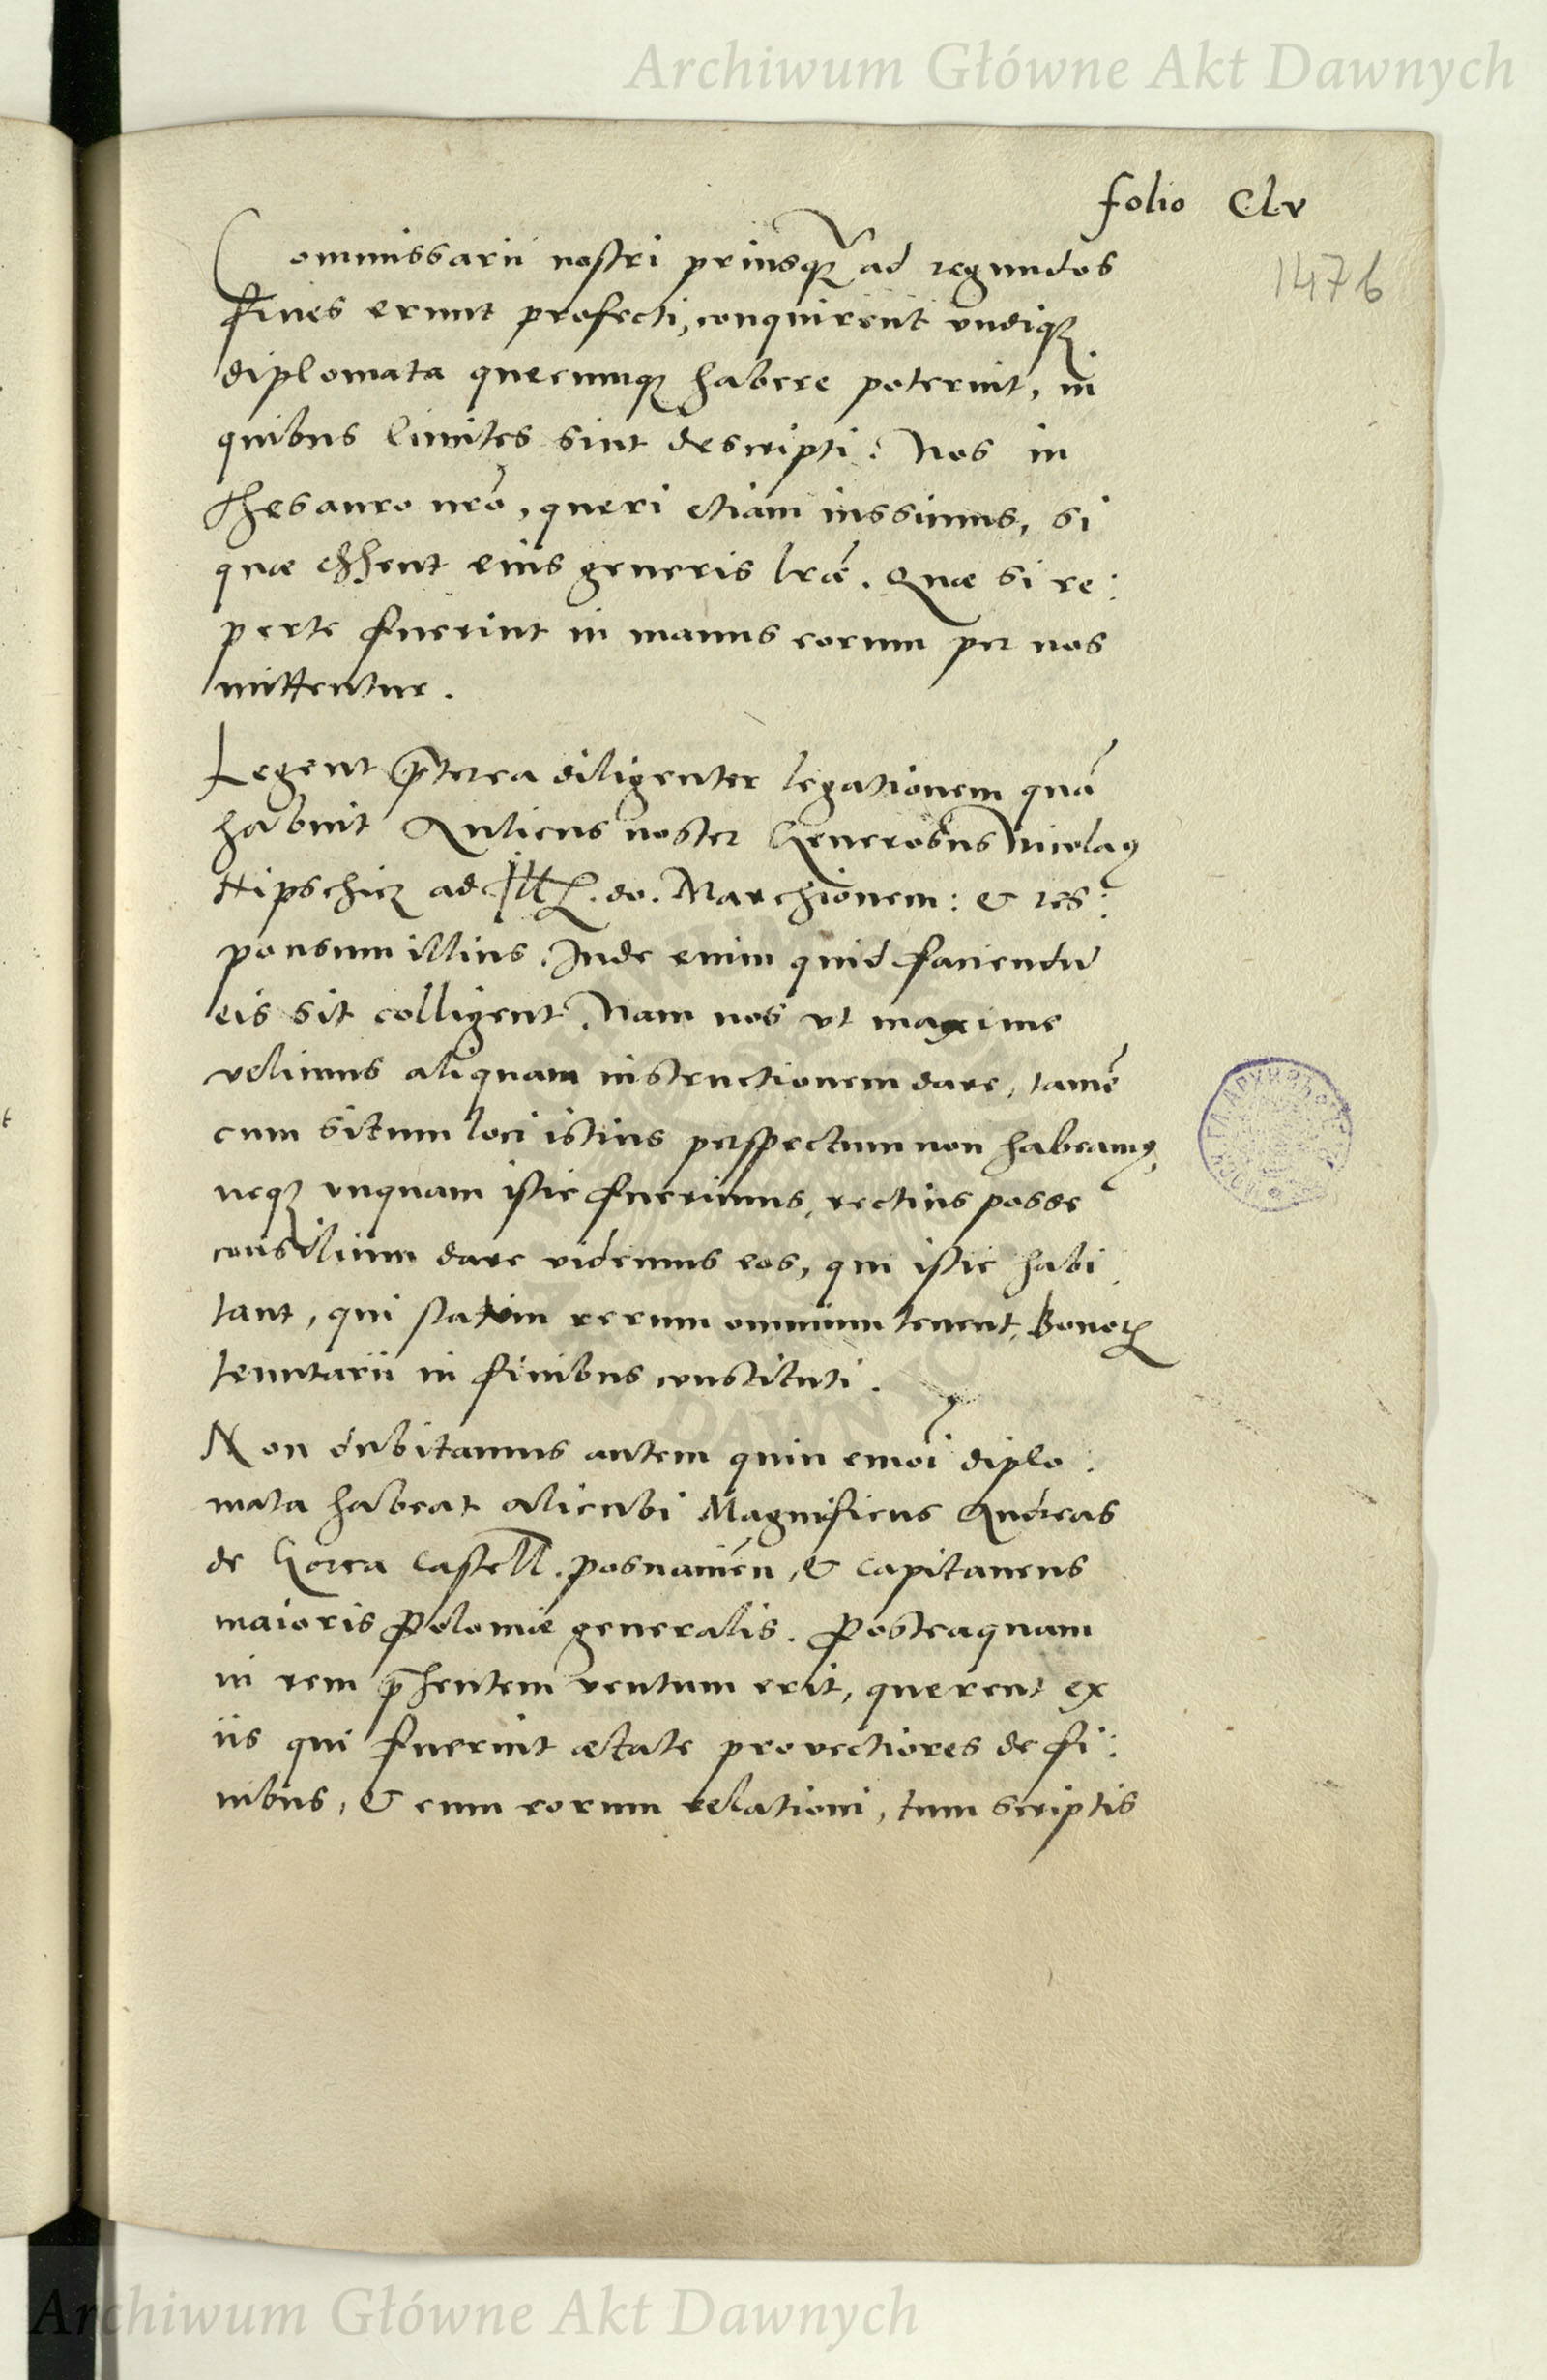 Archiwum Główne Akt Dawnych
folio Clv
1476
Commissarii nostri priusq̃ ad regundos
fines erunt profecti, conquirent undiq;
diplomata quecumq; habere poterint, in
quibus limites sint descripti: Nos in
Thesauro nr̃o, queri etiam iussimus, si
quæ essent eius generis lr̃æ. Quæ si re:
perte fuerint in manus eorum per nos
mittentur.
Legent p̃terea diligenter legationem quã
habuit Aulicus noster Generosus Nicolaꝯ
Nipschicz ad Ill. do. Marchionem: & res:
ponsum illius. Inde enim quid faciendũ
eis sit colligent. Nam nos ut maxime
velimus aliquam instructionem dare, tamẽ
cum situm loci istius perspectum non habeamꝯ,
neq; unquam istic fuerimus, rectius posse
consilium dare videmus eos, qui istic habi
tant, qui statum rerum omnium tenent, Bonoꝝ
tenutarii in finibus constituti.
Non dubitamus autem quin eiusmõi diplo:
mata habeat alicubi Magnificus Andreas
de Gorca Castell. posnanieñ, & Capitaneus
maioris Poloniæ generalis. Posteaquam
in rem p̃sentem ventum erit, querent ex
iis qui fuerint ætate provectiores de fi:
nibus, & cum eorum relationi, tum scriptis
Archiwum Główne Akt Dawnych